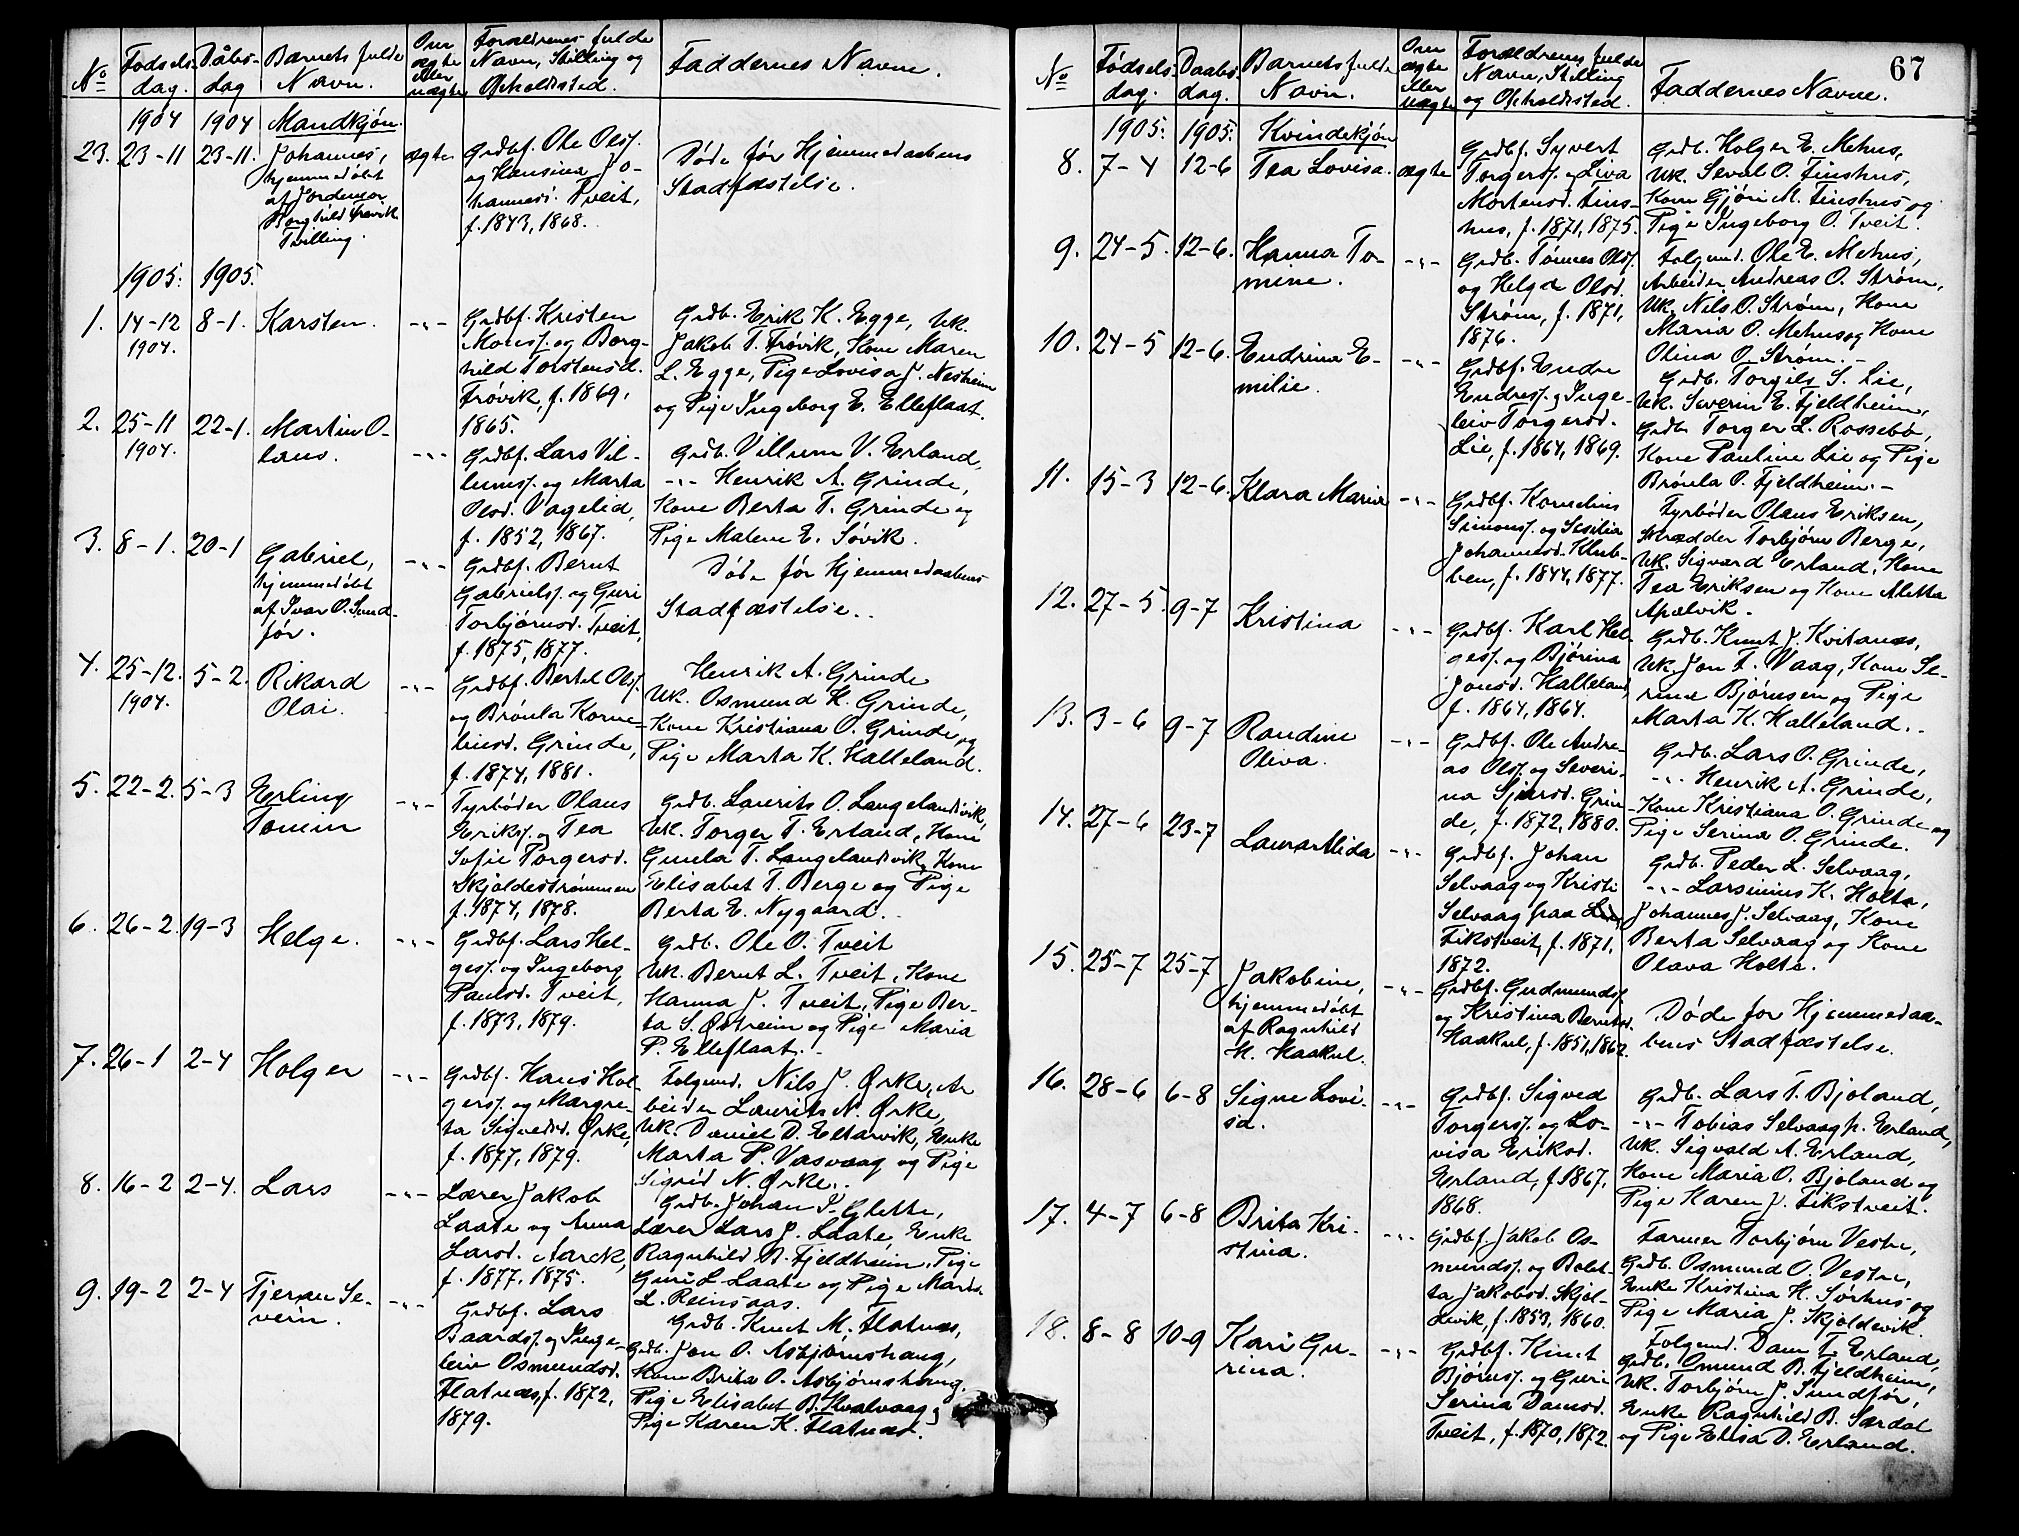 No
Fødsels-
dag.
Dåbs-
dag
Barnets fulde
Navn.
Om
ægte
eller
uægte
Forældrenes fulde
Navn, Stilling og
Opholdssted.
Faddernes Navne.
1904 1904 Mandkjøn.
23. 23-11 23-11.
Johannes,
hjemmedøbt
af Jordemor
Borghild Frøvik
Tvilling.
ægte
Grdbf. Ole Olsf.
og Hansina Jo-
hannesd. Tveit,
f. 1843, 1868.
Døde før Hjemmedaabens
Stadfæstelse.
1905. 1905.
1. 14-12 8-1.
1904.
Karsten.
-"-
Grdbf. Kristen
Monsf. og Borg-
hild Torstensd.
Frøvik, f. 1869,
1865.
Grdb. Erik K. Egge, Uk.
Jakob T. Frøvik, Kone Maren
L. Egge, Pige Lovisa J. Nesheim
og Pige Ingeborg E. Elleflaat.
2. 25-11 22-1.
1904.
Martin O-
laus.
-"-
Grdbf. Lars Vil-
lumsf. og Marta
Olsd. Vagelid,
f. 1852, 1867.
Grdb. Villum V. Erland,
-"- Henrik A. Grinde,
Kone Berta T. Grinde og
Pige Malene E. Søvik.
3. 8-1. 20-1
Gabriel,
hjemmedøbt
af Ivar O. Sund-
før.
-"-
Grdbf. Bernt
Gabrielsf. og Guri
Torbjørnsd. Tveit,
f. 1875, 1877.
Døde før Hjemmedaabens
Stadfæstelse.
4. 25-12. 5-2.
1904.
Rikard
Olai.
-"-
Grdbf. Bertel Olsf.
og Brønla Korne-
liusd. Grinde,
f. 1874, 1881.
Henrik A. Grinde
Uk. Osmund H. Grinde,
Kone Kristiana O. Grinde og
Pige Marta K. Halleland.
5. 22-2. 5-3
Erling
Tomin
-"-
Fyrbøder Olaus
Eriksf. og Tea
Sofie Torgersd.
Skjoldestrømmen
f. 1874, 1878.
Grdb. Laurits O. Langelandsvik,
Uk. Torger T. Erland, Kone
Gunla T. Langelandsvik, Kone
Elisabet T. Berge og Pige
Berta E. Nygaard.
6. 26-2. 19-3
Helge.
-"-
Grdbf. Lars Hel-
gesf. og Ingeborg
Paulsd. Tveit,
f. 1873, 1879.
Grdb. Ole O. Tveit
Uk. Bernt L. Tveit, Kone
Hanna J. Tveit, Pige Ber-
ta S. Østreim og Pige Maria
P. Elleflaat.
7. 26-1 2-4
Holger
-"-
Grdbf. Hans Hol-
gersf. og Margre-
ta Sigvedsd. Ørke,
f. 1877, 1879.
Folgmd. Nils J. Ørke, Ar-
beider Laurits N. Ørke,
Uk. Daniel D. Eltarvik, Enke
Marta P. Vasvaag og Pige
Sigrid N. Ørke.
8. 16-2 2-4.
Lars
-"-
Lærer Jakob
Laate og Anna
Larsd. Aarek,
f. 1877, 1875.
Grdb. Johan I. Glette,
Lærer Lars J. Laate, Enke
Ragnhild B. Fjeldheim, Pige
Guri L. Laate og Pige Marta
L. Reinsaas.
9. 19-2 2-4
Tjeran Se-
verin.
-"-
Grdbf. Lars
Baardsf. og Inge-
leiv Osmundsd.
Flatnes, f. 1872,
1879.
Grdb. Knut M. Flatnes,
Grdb. Jon O. Asbjørnshaug,
Kone Brita O. Asbjørnshaug,
Pige Elisabet B. Kvalvaag og
Pige Karen K. Flatnes.
67
No
Fødsels
dag.
Daabs
dag.
Barnets fulde
Navn.
Om
ægte
eller
uægte
Forældrenes fulde
Navn, Stilling
og Opholdssted.
Faddernes Navne.
1905. 1905. Kvindekjøn
8. 7-4 12-6
Tea Lovisa.
ægte
Grdbf. Syvert
Torgersf. og Liva
Mortensd. Fins-
hus, f. 1871, 1875.
Grdb. Holger E. Mehus,
Uk. Sevat O. Finshus,
Kone Gjøri M. Finshus og
Pige Ingeborg O. Tveit.
9. 24-5. 12-6.
Hanna To-
mine.
-"-
Grdb. Tønnes Olsf.
og Helga Olsd.
Strøm, f. 1871,
1876.
Folgmd. Ole E. Mehus,
Arbeider Andreas O. Strøm,
Uk. Nils O. Strøm, Kone
Maria O. Mehus og Kone
Olina O. Strøm.
10. 24-5 12-6.
Endrina E-
milie.
-"-
Grdbf. Endre
Endresf. og Inge-
leiv Torgersd.
Lie, f. 1864, 1869.
Grdb. Torgils S. Lie,
Uk. Severin E. Fjeldheim,
Grdb. Torger L. Rossebø,
Kone Pauline Lie og Pige
Brønla O. Fjeldheim.
11. 15-3 12-6.
Klara Maria
-"-
Grdbf. Kornelius
Simonsf. og Sesilia
Johannesd. Klub-
ben, f. 1844, 1877.
Fyrbøder Olaus Eriksen,
Skrædder Torbjørn Berge,
Uk. Sigvard Erland, Kone
Tea Eriksen og Kone Aletta
Apelvik.
12. 27-5. 9-7
Kristina
-"-
Grdbf. Karl Hel-
gesf. og Bjørina
Jonsd. Halleland
f. 1864, 1864.
Grdb. Knut J. Kvitanes,
Uk. Jon T. Vaag, Kone Se-
rine Bjørnsen og Pige
Marta K. Halleland.
13. 3-6 9-7
Randine
Oliva.
-"-
Grdbf. Ole Andre-
as Olsf. og Severi-
na Sjursd. Grin-
de, f. 1872, 1880.
Grdb. Lars O. Grinde,
-"- Henrik A. Grinde,
Kone Kristiana O. Grinde og
Pige Serina O. Grinde.
14. 27-6 23-7
Laura Alida
-"-
Grdbf. Johan
Selvaag og Kristi
Selvaag paa
Fikstveit, f. 1871,
1872.
Grdb. Peder L. Selvaag,
-"- Larsinius K. Holte,
Johannes J. Selvaag, Kone
Berta Selvaag og Kone
Olava Holte.
15. 25-7 25-7
Jakobine,
hjemmedøbt
af Ragnhild
M. Haakul.
-"-
Grdbf. Gudmundsf.
og Kristina Berntsd.
Haakul, f. 1851, 1862.
Døde for Hjemmedaa-
bens Stadfæstelse.
16. 28-6 6-8
Signe Lovi-
sa.
-"-
Grdbf. Sigved
Torgersf. og Lo-
visa Eriksd.
Erland, f. 1867,
1868.
Grdb. Lars T. Bjoland,
-"- Tobias Selvaag p. Erland,
Uk. Sigvald A. Erland,
Kone Maria O. Bjoland og
Pige Karen J. Fikstveit.
17. 4-7 6-8
Brita Kri-
stina.
-"-
Grdbf. Jakob Os-
mundsf. og Bolet-
ta Jakobsd. Skjol-
devik, f. 1853, 1860.
Farmer Torbjørn Vestre,
Grdb. Osmund O. Vestre,
Enke Kristina H. Sørhus og
Pige Maria J. Skjoldevik.
18. 8-8 10-9
Kari Gu-
rina.
-"-
Grdbf. Knut
Bjørnsf. og Guri
Serina Damsd.
Tveit, f. 1870, 1872.
Folgmd. Dam T. Erland,
Grdb. Osmund B. Fjeldheim,
Uk. Torbjørn J. Sundfør,
Enke Ragnhild B. Særdal
og Pige Elisa D. Erland.